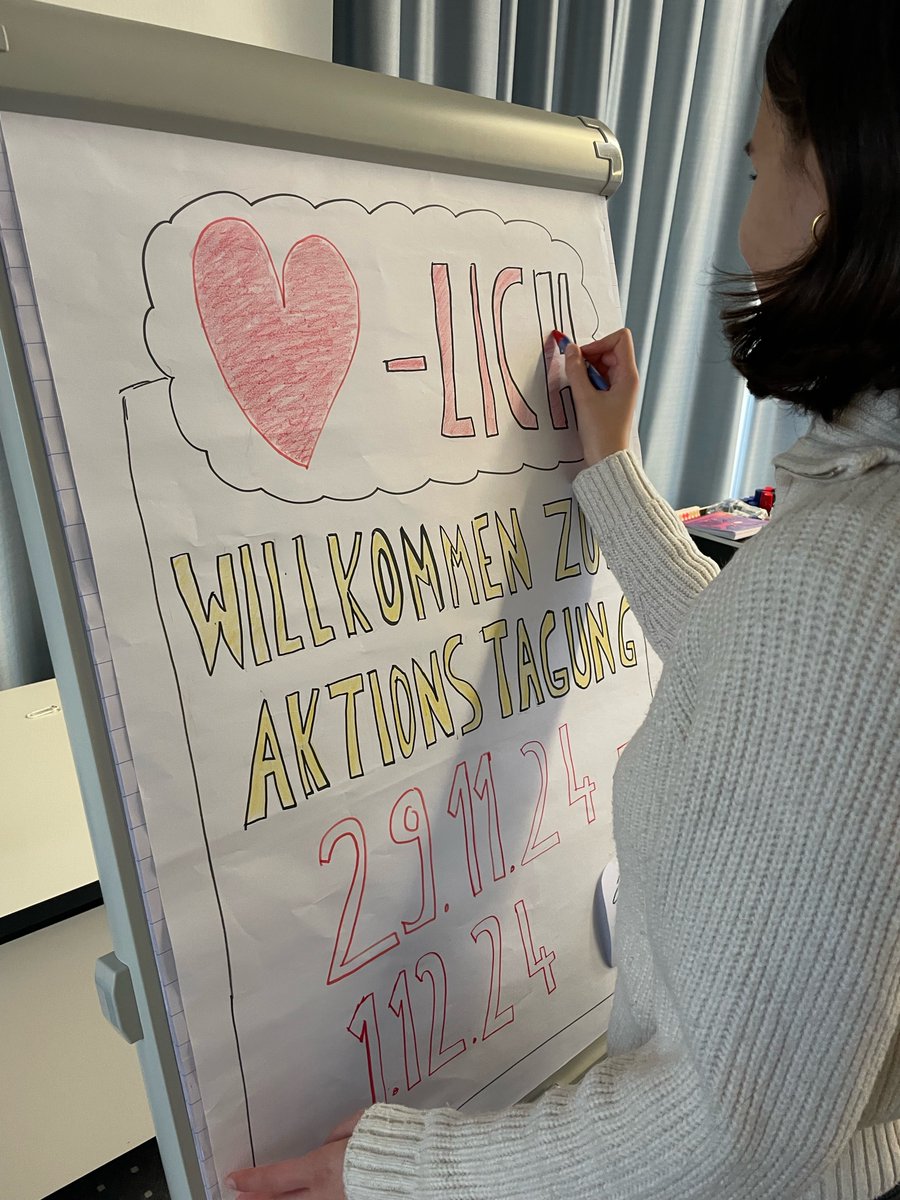 -LICH
WILLKOMMEN
AKTIONSTAGUNG
29.11.24 -
1.12.24